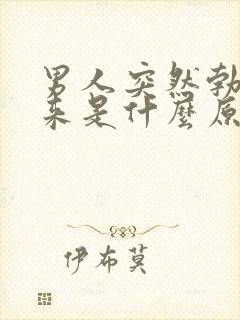 男人突然勃
来是什麼原
伊布莫